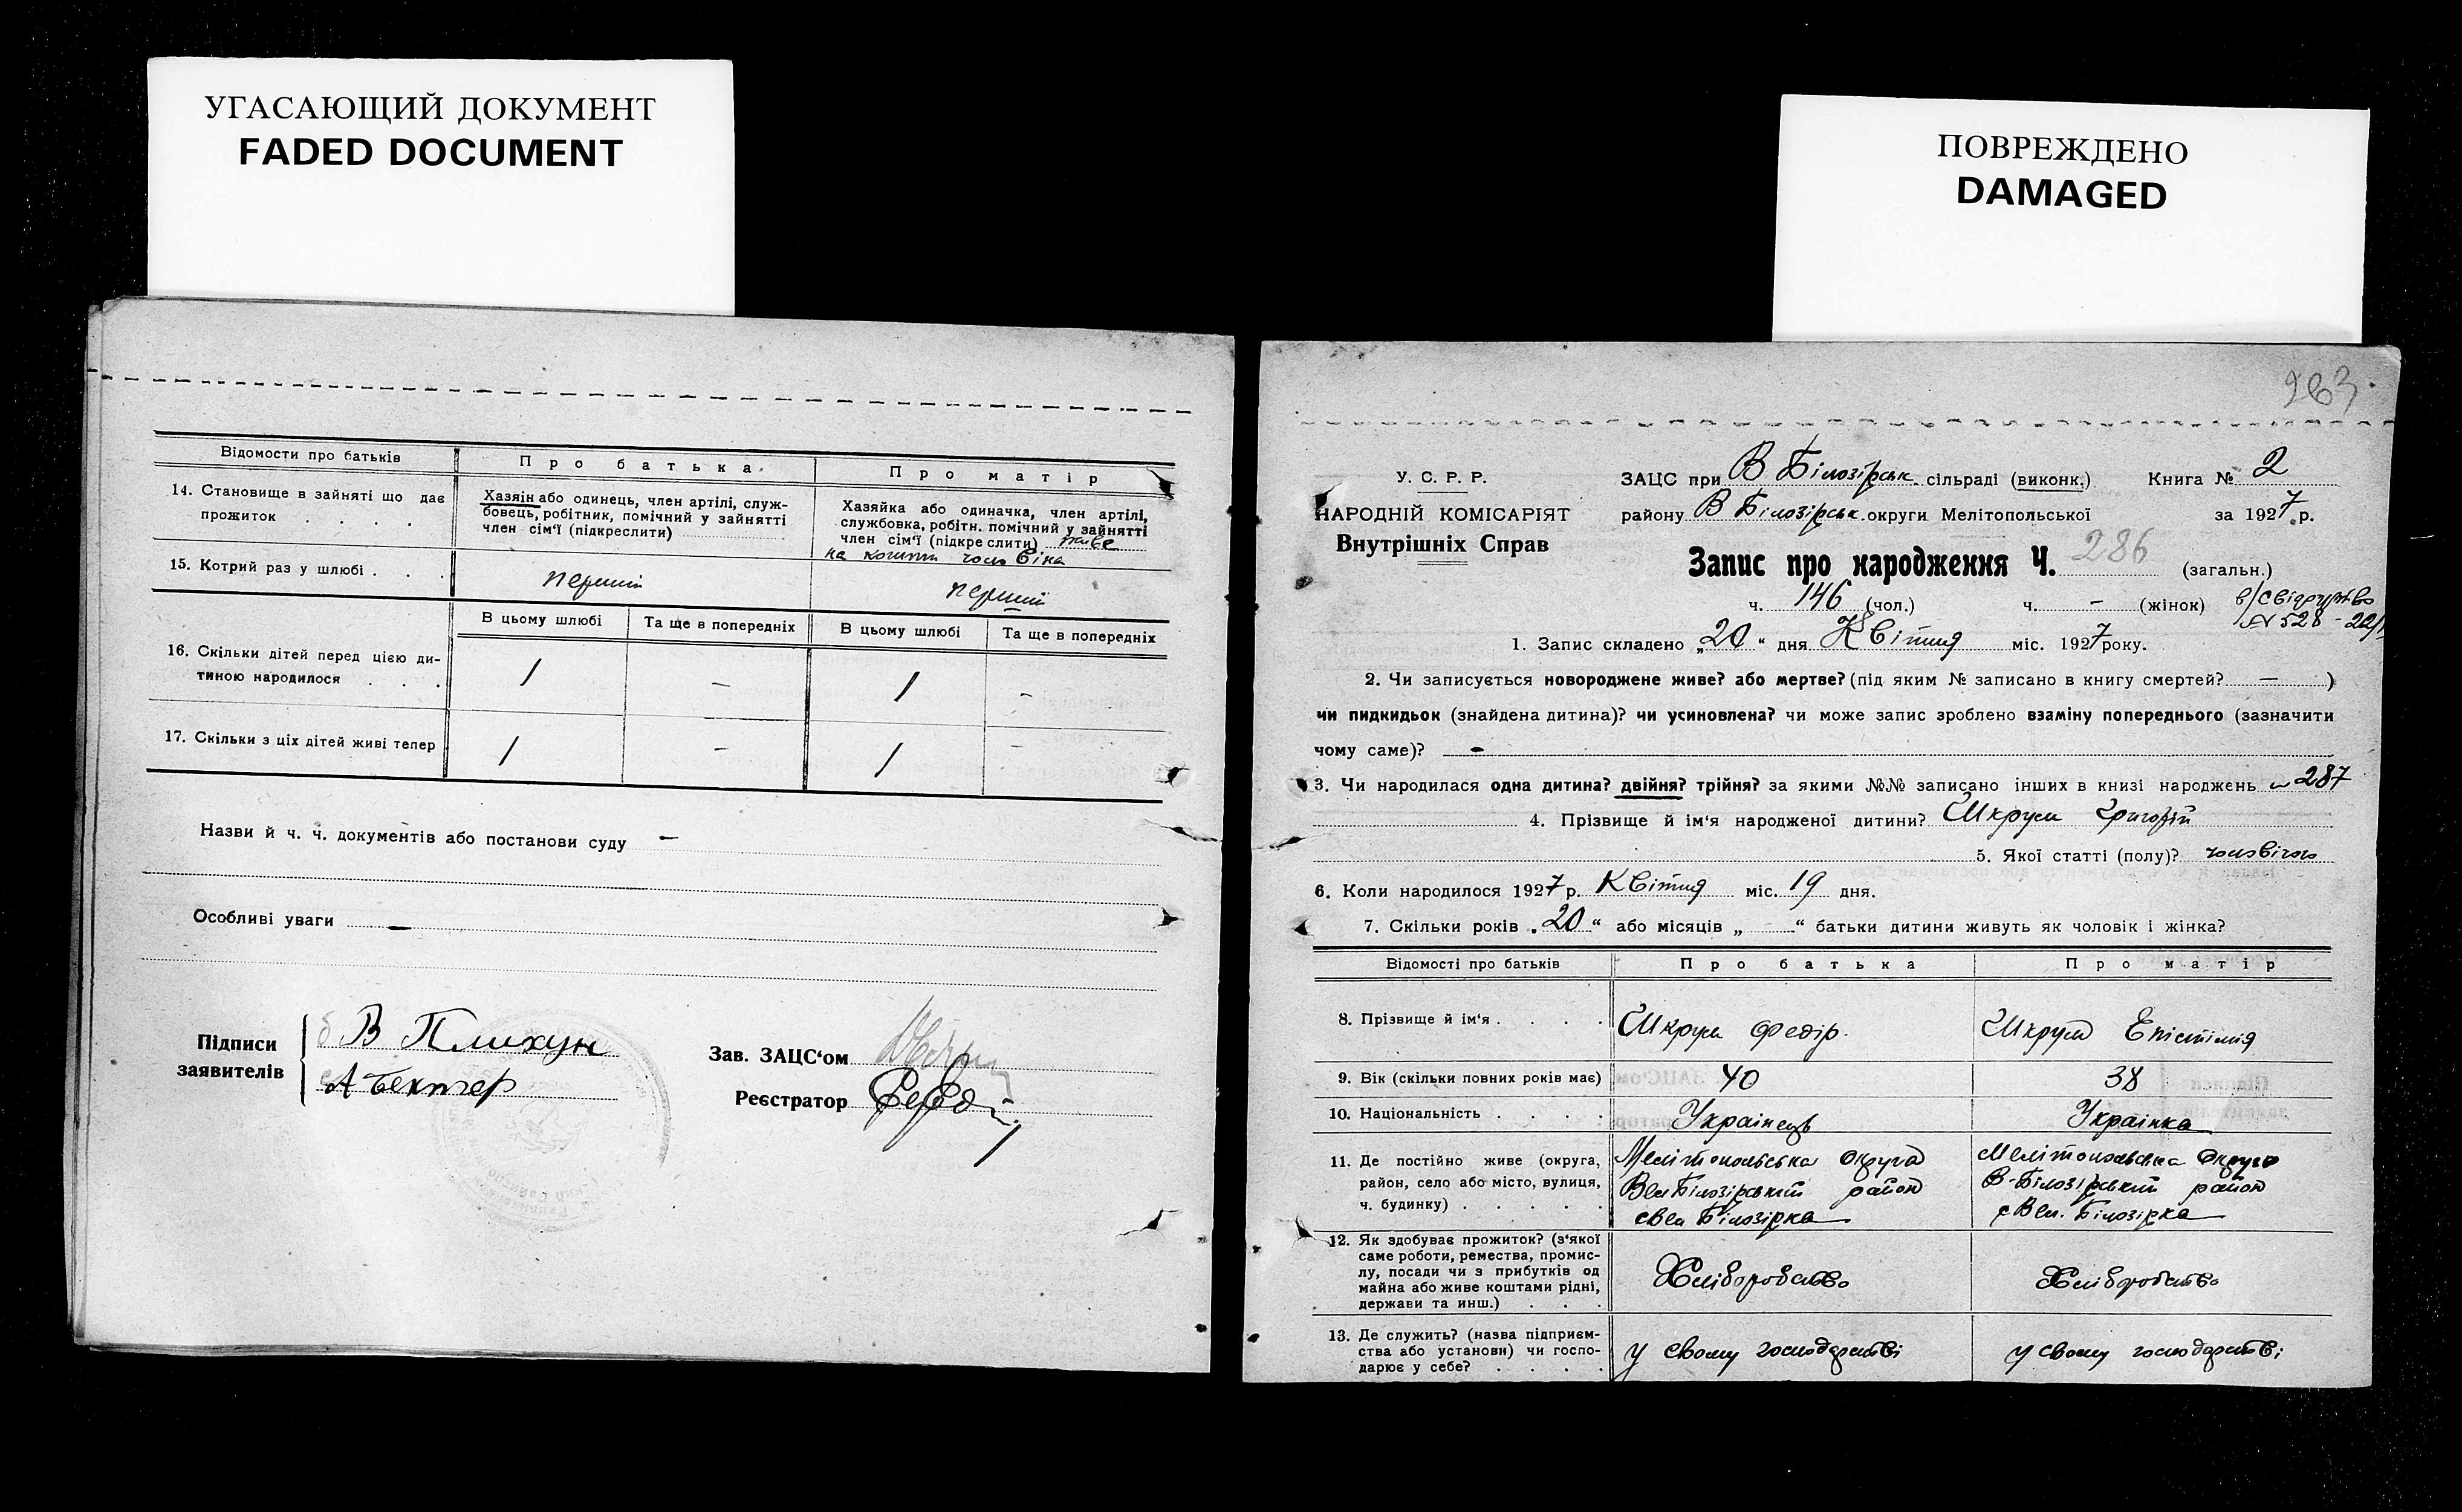 УГАСАЮЩИЙ ДОКУМЕНТ
FADED DOCUMENT
ПОВРЕЖДЕНО
DAMAGED
Відомости про батьків
Про батька
Про матір
14. Становище в зайняті що дає
прожиток . . . .
Хазяін або одинець, член артілі, служ-
бовець, робітник, помічний у зайнятті
член сім'ї (підкреслити)
Хазяйка або одиначка, член артілі,
службовка, робітн. помічний у зайнятті
член сім'ї (підкреслити) живе
на кошти чоловіка
15. Котрий раз у шлюбі . . .
перший
перший
В цьому шлюбі
Та ще в попередніх
В цьому шлюбі
Та ще в попередніх
16. Скільки дітей перед цією ди-
тиною народилося . . .
1 – 1 –
17. Скільки з ціх дітей живі тепер
1 – 1 –
Назви й ч. ч. документів або постанови суду –
Особливі уваги –
Підписи
заявителів
В Плихун
А Бехтер
Зав. ЗАЦС'ом
Реєстратор
263
У. С. Р. Р.
НАРОДНІЙ КОМІСАРІЯТ
Внутрішніх Справ
ЗАЦС при В Білозірськ. сільраді (виконк.) Книга № 2
району В Білозірськ. округи Мелітопольської за 1927 р.
Запис про народження Ч. 286 (загальн.)
ч. 146 (чол.) ч. – (жінок)
в/свідоцтво
№ 528 - 22/
1. Запис складено „20" дня Квітня міс. 1927 року.
2. Чи записується новороджене живе? або мертве? (під яким № записано в книгу смертей? – )
чи пидкидьок (знайдена дитина)? чи усиновлена? чи може запис зроблено взаміну попереднього (зазначити
чому саме)? –
3. Чи народилася одна дитина? двійня? трійня? за якими №№ записано інших в книзі народжень 287
4. Прізвище й ім'я народженої дитини? Шкрум Григорій
5. Якої статті (полу)? чоловічого
6. Коли народилося 1927 р. Квітня міс. 19 дня.
7. Скільки років „20" або місяців „ " батьки дитини живуть як чоловік і жінка?
Відомості про батьків
Про батька
Про матір
8. Прізвище й ім'я . . . .
Шкрум Федір.
Шкрум Епістімія
9. Вік (скільки повних років має)
40
38
10. Національність . . . .
Українець
Українка
11. Де постійно живе (округа,
район, село або місто, вулиця,
ч. будинку) . . . . .
Мелітопольська округа
Вел Білозірський район
с Вел Білозірка
Мелітопольська округа
В-Білозірський район
с Вел. Білозірка
12. Як здобуває прожиток? (з'якої
саме роботи, ремества, промис-
лу, посади чи з прибутків од
майна або живе коштами рідні,
держави та инш.) . . .
Хліборобство
Хліборобство
13. Де служить? (назва підприєм-
ства або установи) чи госпо-
дарює у себе? . . . .
у свому господарстві
у свому господарстві